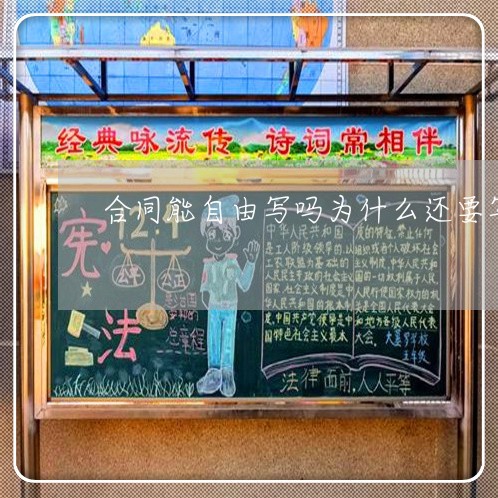 经典咏流传 诗词常相伴
合同能自由写吗为什么还要
宪法
12.4
公平 公正
总章程
中华人民共和国
是工人阶级领导的,以
工农联盟为基础的
人民民主专政的社会主义
国家,社会主义制度是中
华人民共和国的根本制
度,中国共产党领导是中
国特色社会主义最本
质的特征,禁止任何
组织或者个人破坏社会
主义制度,中华人民共和
国的一切权利属于人民,
人民行使国家权力的机
关是全国人民代表大会
和地方各级人民代表
大会。
五年级
法律面前,人人平等